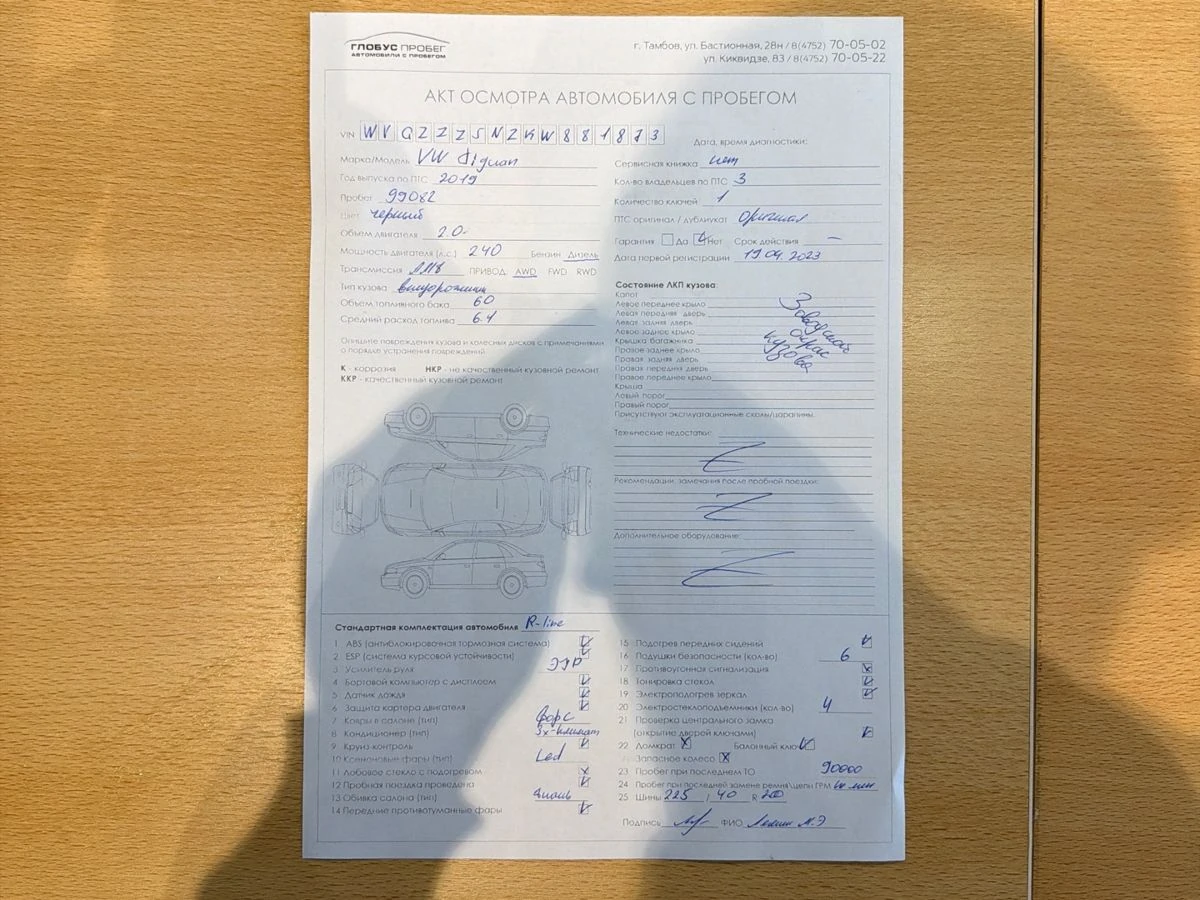 ГЛОБУС ПРОБЕГ
АВТОМОБИЛИ С ПРОБЕГОМ
г. Тамбов, ул. Бастионная, 28н / 8(4752) 70-05-02
ул. Киквидзе, 83 / 8(4752) 70-05-22
АКТ ОСМОТРА АВТОМОБИЛЯ С ПРОБЕГОМ
VIN WVGZZZ5NZKW881873
Дата, время диагностики:
Марка/Модель VW Tiguan
Год выпуска по ПТС 2019
Пробег 99082
Цвет черный
Объем двигателя 2.0
Мощность двигателя (л.с.) 240 Бензин Дизель
Трансмиссия ПРИВОД: AWD FWD RWD
Тип кузова внедорожник
Объем топливного бака 60
Средний расход топлива 6.4
Опишите повреждения кузова и колесных дисков с примечаниями
о порядке устранения повреждений
К - коррозия НКР - не качественный кузовной ремонт
ККР - качественный кузовной ремонт
Сервисная книжка нет
Кол-во владельцев по ПТС 3
Количество ключей 1
ПТС оригинал / дубликат Оригинал
Гарантия Да Нет Срок действия —
Дата первой регистрации 19.04.2023
Состояние ЛКП кузова:
Капот
Левое переднее крыло
Левая передняя дверь
Левая задняя дверь
Левое заднее крыло
Крышка багажника
Правое заднее крыло
Правая задняя дверь
Правая передняя дверь
Правое переднее крыло
Крыша
Левый порог
Правый порог
Заводской
окрас
кузова
Присутствуют эксплуатационные сколы/царапины.
Технические недостатки:
Рекомендации, замечания после пробной поездки:
Дополнительное оборудование:
Стандартная комплектация автомобиля R-line
1 ABS (антиблокировочная тормозная система)
2 ESP (система курсовой устойчивости)
3 Усилитель руля ЭУР
4 Бортовой компьютер с дисплеем
5 Датчик дождя
6 Защита картера двигателя
7 Ковры в салоне (тип) ворс
8 Кондиционер (тип) 3х-климат
9 Круиз-контроль
10 Ксеноновые фары (тип) Led
11 Лобовое стекло с подогревом
12 Пробная поездка проведена
13 Обивка салона (тип)
14 Передние противотуманные фары
15 Подогрев передних сидений
16 Подушки безопасности (кол-во) 6
17 Противоугонная сигнализация
18 Тонировка стекол
19 Электроподогрев зеркал
20 Электростеклоподъемники (кол-во) 4
21 Проверка центрального замка
(открытие дверей ключами)
22 Домкрат Балонный ключ
Запасное колесо
23 Пробег при последнем ТО 90000
24 Пробег при последней замене ремня/цепи ГРМ
25 Шины 225 / 40 R 20
Подпись ФИО